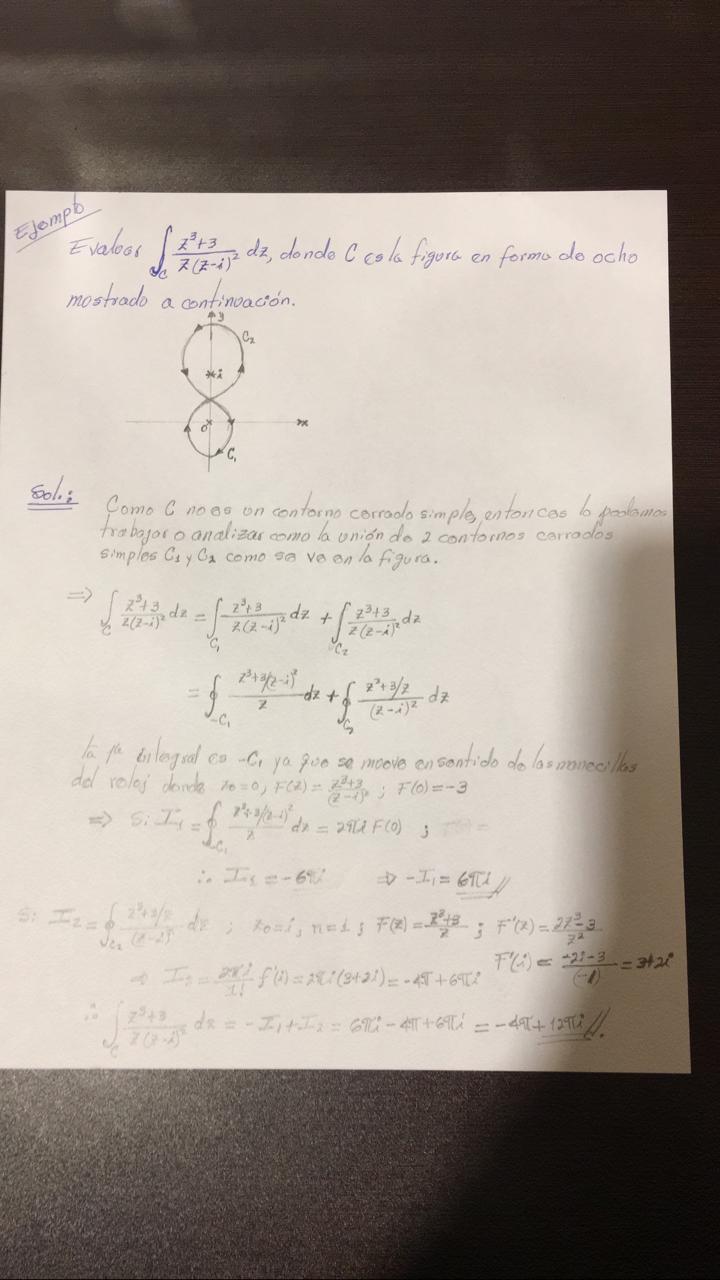 Ejemplo
Evaluar ∫_C (z³+3)/(z(z-i)²) dz, donde C es la figura en forma de ocho
mostrado a continuación.
y
C₂
i
0
x
C₁
Sol.:
Como C no es un contorno cerrado simple, entonces lo podemos
trabajar o analizar como la unión de 2 contornos cerrados
simples C₁ y C₂ como se ve en la figura.
⇒ ∫_C (z³+3)/(z(z-i)²) dz = ∫_C₁ (z³+3)/(z(z-i)²) dz + ∫_C₂ (z³+3)/(z(z-i)²) dz
= ∮_-C₁ (z³+3/(z-i)²)/z dz + ∮_C₂ (z³+3/z)/(z-i)² dz
la 1ª integral es -C₁ ya que se mueve en sentido de las manecillas
del reloj donde z₀=0, F(z) = (z³+3)/(z-i)² ; F(0)=-3
⇒ Si I₁ = ∮_-C₁ (z³+3/(z-i)²)/z dz = 2πi F(0) ;
∴ I₁ = -6πi ⇒ -I₁ = 6πi //
Si I₂ = ∮_C₂ (z³+3/z)/(z-i)² dz ; z₀=i, n=1 ; F(z) = (z³+3)/z ; F'(z) = (2z³-3)/z²
F'(i) = (-2i-3)/(-1) = 3+2i
⇒ I₂ = (2πi/1!) f'(i) = 2πi(3+2i) = -4π+6πi
∴ ∫_C (z³+3)/(z(z-i)²) dz = -I₁+I₂ = 6πi-4π+6πi = -4π+12πi //.